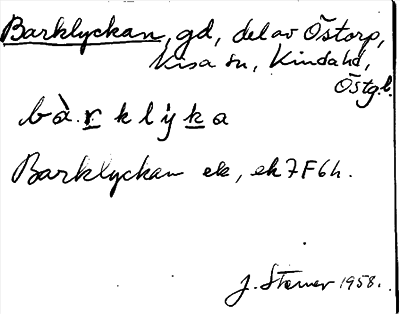 Barklyckan, gd, del av Östorp,
Kisa sn, Kinda hd,
Östg.l.
bà.r k l y k a
Barklyckan ek, ek 7F6h.
J. Stamer 1958.